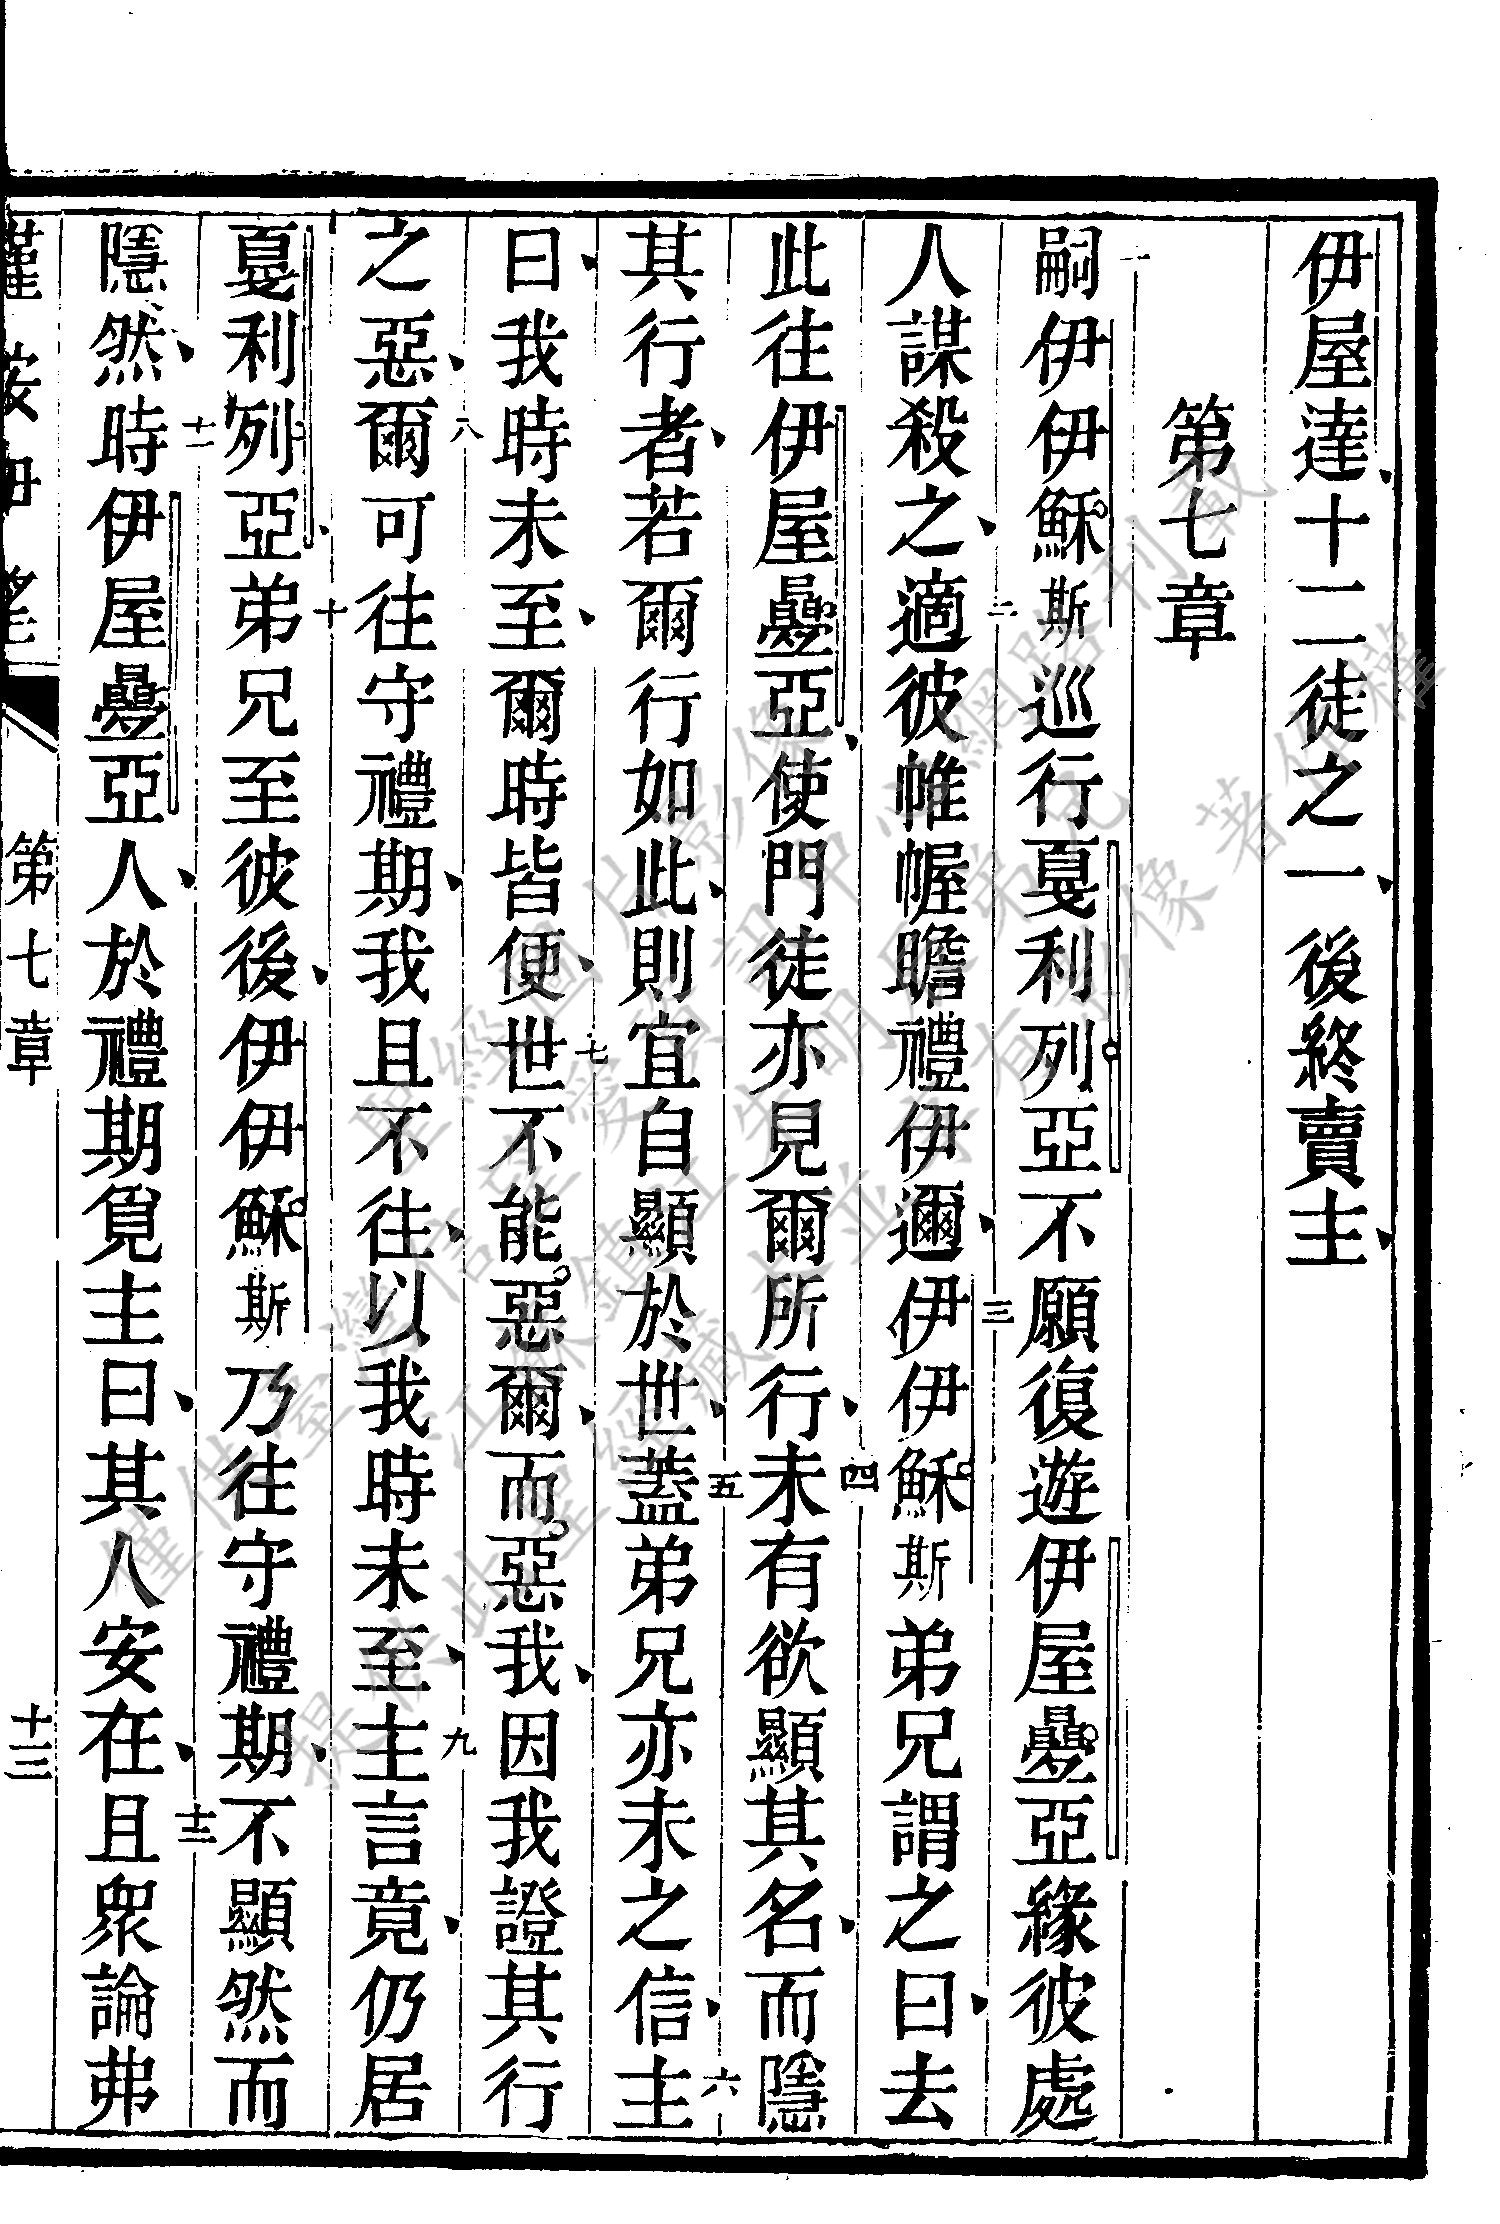 伊屋達十二徒之一後終賣主
第七章
一嗣伊伊穌斯巡行戛利列亞不願復遊伊屋疊亞緣彼處
人謀殺之二適彼帷幄瞻禮伊邇三伊伊穌斯弟兄謂之曰去
此往伊屋疊亞使門徒亦見爾所行四未有欲顯其名而隱
其行者若爾行如此則宜自顯於世五蓋弟兄亦未之信六主
曰我時未至爾時皆便七世不能惡爾而惡我因我證其行
之惡八爾可往守禮期我且不往以我時未至九主言竟仍居
戛利列亞十弟兄至彼後伊伊穌斯乃往守禮期不顯然而
隱然十一時伊屋疊亞人於禮期覓主曰其人安在十二且衆論弗
第七章
十三